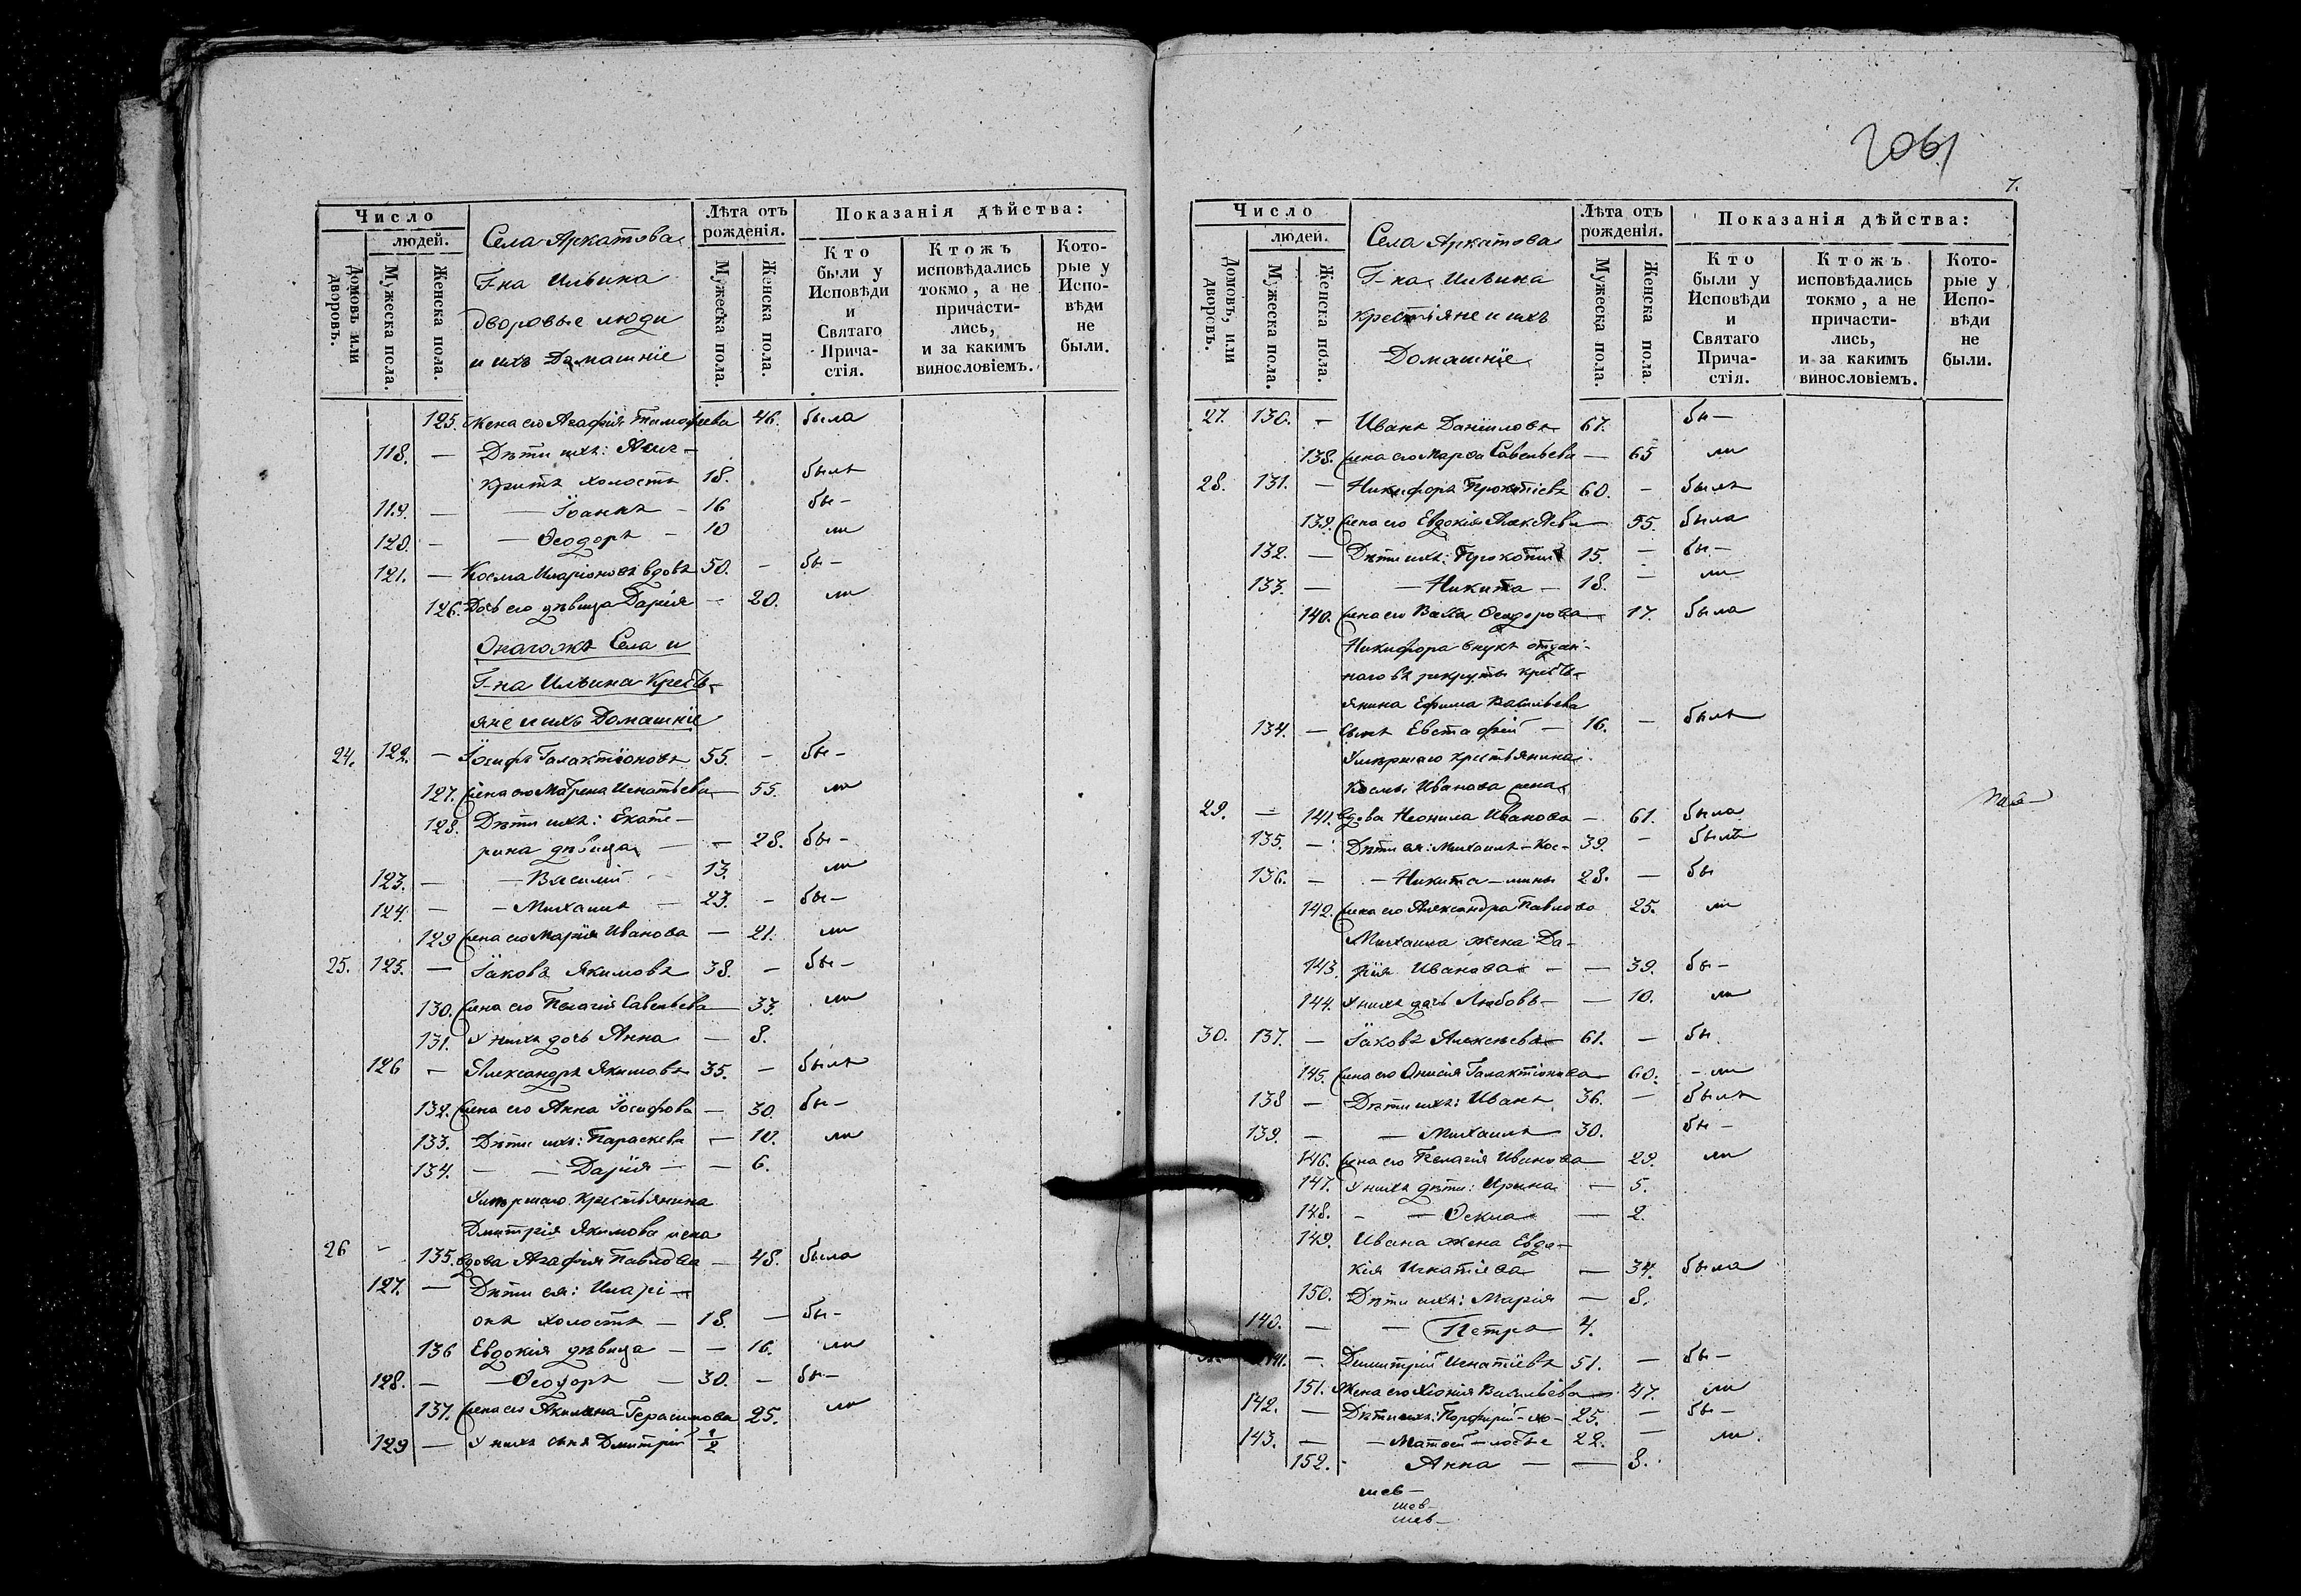 Число
людей.
Домовъ или дворовъ.
Мужеска пола.
Женска пола.
Села Аркатова
Г-на Ильина
дворовые люди
и ихъ Домашніе
Лѣта отъ рожденія.
Мужеска пола.
Женска пола.
Показанія дѣйства:
Кто были у Исповѣди и Святаго Прича-стія.
Ктожъ исповѣдались токмо, а не причасти-лись, и за какимъ винословіемъ.
Кото-рые у Испо-вѣди не были.
125. Жена его Агафія Тимофеева 46. была
118. — Дѣти ихъ: Асиг-
критъ холостъ 18. былъ
119. — — Іоаннъ — 16 бы-
120. — — Ѳеодоръ — 10 ли
121. — Косма Иларіоновъ вдовъ 50. — бы-
126. Дочь его дѣвица Дарія — 20. ли
Онагожъ Села и
Г-на Ильина Кресть-
яне и ихъ Домашніе
24. 122. — Іосифъ Галактіоновъ 55. — бы-
127. Жена его Матрена Игнатьева — 55. ли
128. Дѣти ихъ: Екате-
рина дѣвица — — 28. бы-
123. — — Василій — 13. ли
124. — — Михаилъ — 23. — бы-
129 Жена его Марія Иванова — 21. ли
25. 125. — Іаковъ Якимовъ 38. — бы-
130. Жена его Пелагія Савельева — 33. ли
131. У нихъ дочь Анна — 8.
126 — Александръ Якимовъ 35. — былъ
132. Жена его Анна Іосифова — 30. бы-
133. Дѣти ихъ: Параскева — 10. ли
134. — — Дарія — — 6.
Умершаго Крестьянина
Дмитрія Якимова жена
26 — 135. вдова Агафія Павлова — 48. была
127. — Дѣти ея: Иларі-
онъ холостъ — 18. — бы-
136 Евдокія дѣвица — — 16. ли
128. — — Ѳеодоръ — 30. — бы-
137. Жена его Акилина Герасимова 25. ли
129 — У нихъ сынъ Дмитрій 1/2
2061
7.
Число
людей.
Домовъ, или дворовъ.
Мужеска пола.
Женска пола.
Села Аркатова
Г-на Ильина
крестьяне и ихъ
Домашніе
Лѣта отъ рожденія.
Мужеска пола.
Женска пола.
Показанія дѣйства:
Кто были у Исповѣди и Святаго Прича-стія.
Ктожъ исповѣдались токмо, а не причасти-лись, и за какимъ винословіемъ.
Кото-рые у Испо-вѣди не были.
27. 130. — Иванъ Даниловъ 67. бы-
138. Жена его Марѳа Савельева — 65 ли
28. 131. — Никифоръ Прокопіевъ 60. — былъ
139. Жена его Евдокія — 55. была
132. — Дѣти ихъ: Прокопій 15. — бы-
133. — — Никита — 18. — ли
140. Жена его Васса Ѳеодорова — 17. была
Никифора внукъ отдан-
наго въ рекруты кресть-
янина Ефима Васильева
134. — сынъ Евстафій — 16. — былъ
Умершаго крестьянина
Космы Иванова жена
29. — 141. вдова Неонила Иванова — 61. была
135. — Дѣти ея: Михаилъ — Кос- 39. — былъ
136. — — Никита — мины 28. — бы
142. Жена его Александра Павлова 25. ли
Михаила жена Да-
143. рія Иванова — — 39. бы-
144. У нихъ дочь Любовь — — 10. ли
30. 137. — Іаковъ Алексѣевъ 61. — бы
145. Жена его Анисія Галактіонова 60. — ли
138 — Дѣти ихъ: Иванъ 36. — былъ
139. — — Михаилъ 30. бы-
146. Жена его Пелагія Иванова 29. ли
147. У нихъ дѣти: Ирина — 5.
148. — — — 2.
149. Ивана жена Евдо-
кія Игнатіева — 34. была
150. Дѣти ихъ: Марія — 8.
140. — — Петръ 4.
141. — Димитрій Игнатіевъ 51. — бы-
151. Жена его Хіонія Васильева 47. ли
142. — Дѣти ихъ: Порфирій — хо- 25. — бы-
143. — — Матѳей — лостые 22. — ли.
152. — Анна — — 8.